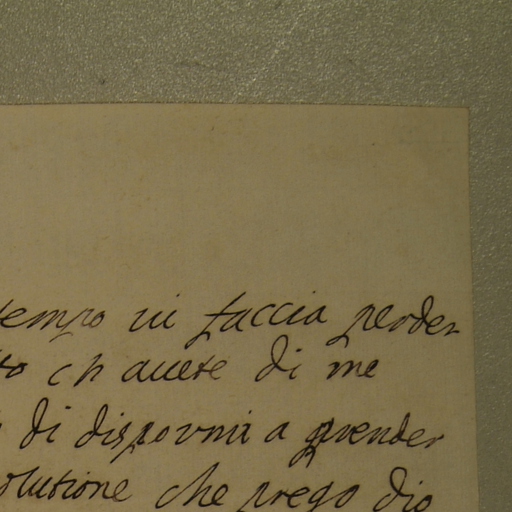 tempo vi faccia perder
to ch auete di me
di dispormi a prender
olutione che prego dio